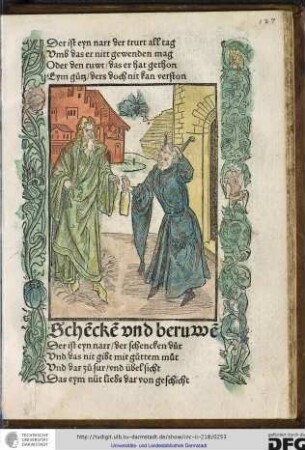 127
Der ist eyn narr der trurt all tag
Vmb das er nitt gewenden mag
Oder den ruwt / das er hat gethon
Eym gůtz / ders doch nit kan verston
Schēckē vnd beruwē
Der ist eyn narr / der schencken důt
Vnd das nit gibt mit gůttem můt
Vnd dar zů sur / vnd übel sicht
Das eym nüt liebs dar von geschicht
http://tudigit.ulb.tu-darmstadt.de/show/inc-ii-218/0253
Universitäts- und Landesbibliothek Darmstadt
TECHNISCHE
UNIVERSITÄT
DARMSTADT
DFG